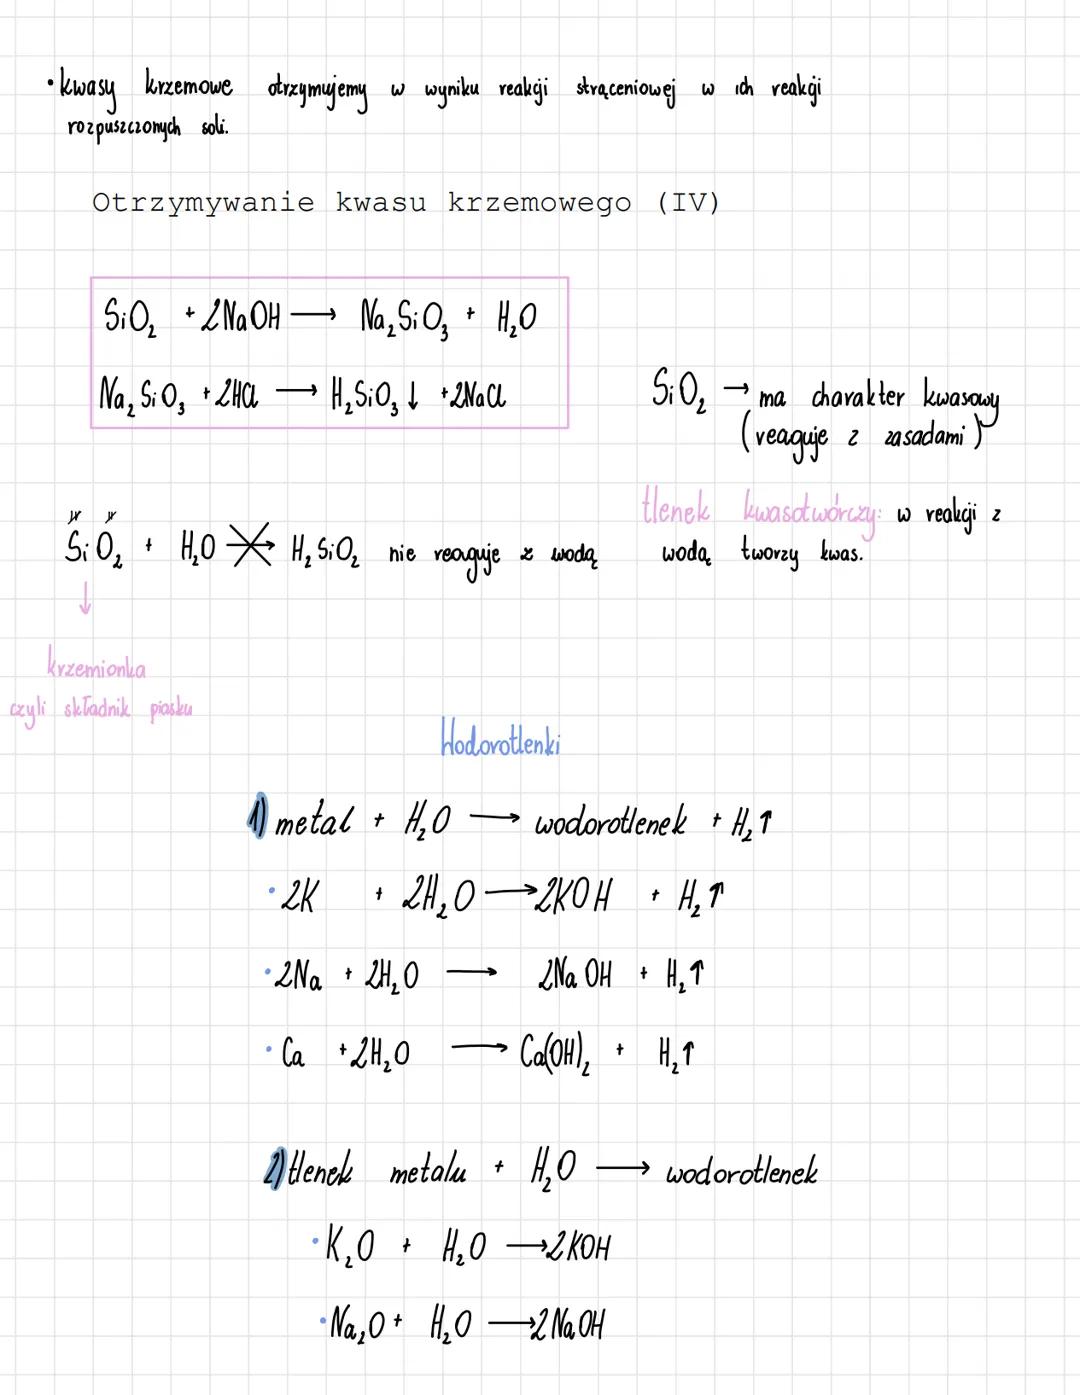 • kwasy krzemowe otrzymujemy w wyniku reakcji strąceniowej w ich reakcji
rozpuszczonych soli.
Otrzymywanie kwasu krzemowego (IV)
SiO₂ + 2NaOH ⟶ Na₂SiO₃ + H₂O
Na₂SiO₃ + 2HCl ⟶ H₂SiO₃↓ + 2NaCl
SiO₂ → ma charakter kwasowy
(reaguje z zasadami)
tlenek kwasotwórczy: w reakcji z
wodą tworzy kwas.
SiO₂ + H₂O ⟶ H₂SiO₂ nie reaguje z wodą
↓
krzemionka
czyli składnik piasku
Wodorotlenki
1) metal + H₂O ⟶ wodorotlenek + H₂↑
• 2K + 2H₂O ⟶ 2KOH + H₂↑
• 2Na + 2H₂O ⟶ 2NaOH + H₂↑
• Ca + 2H₂O ⟶ Ca(OH)₂ + H₂↑
2) tlenek metalu + H₂O ⟶ wodorotlenek
• K₂O + H₂O ⟶ 2KOH
• Na₂O + H₂O ⟶ 2NaOH